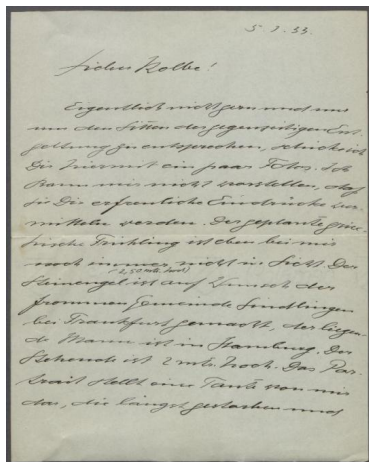 5.3.33.
Lieber Kolbe!
Eigentlich nicht gern und nur
um den Sitten der gegenseitigen Ent-
geltung zu entsprechen, schicke ich
Dir hiermit ein paar Fotos. Ich
kann mir nicht vorstellen, daß
sie Dir erfreuliche Eindrücke ver-
mitteln werden. Der geplante grie-
chische Frühling ist eben bei mir
noch immer nicht in Sicht. Der
(2,50 mtr. hoch)
Steinengel ist auf Wunsch der
frommen Gemeinde Sindlingen
bei Frankfurt gemacht, der liegen-
de Mann ist in Hamburg. Der
Stehende ist 2 mtr. hoch. Das Por-
trait stellt eine Tante von mir
dar, die längst gestorben und